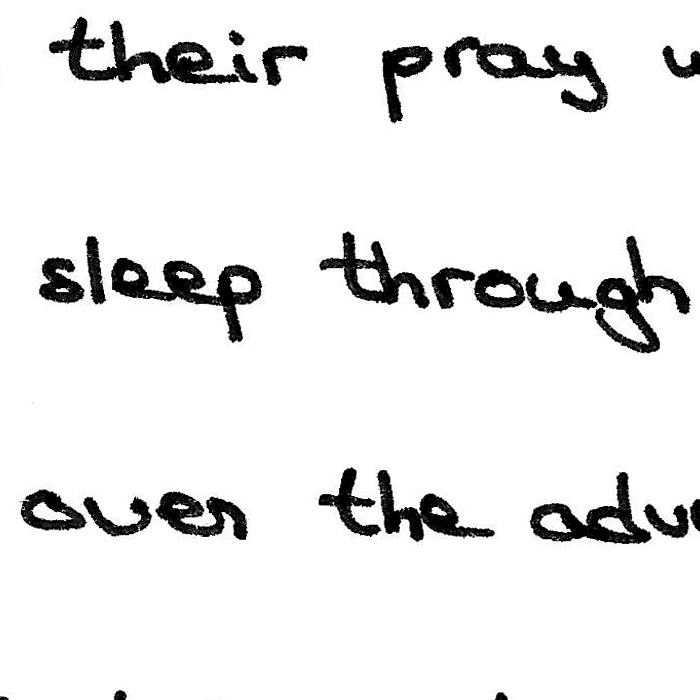 their pray
sleep through
over the